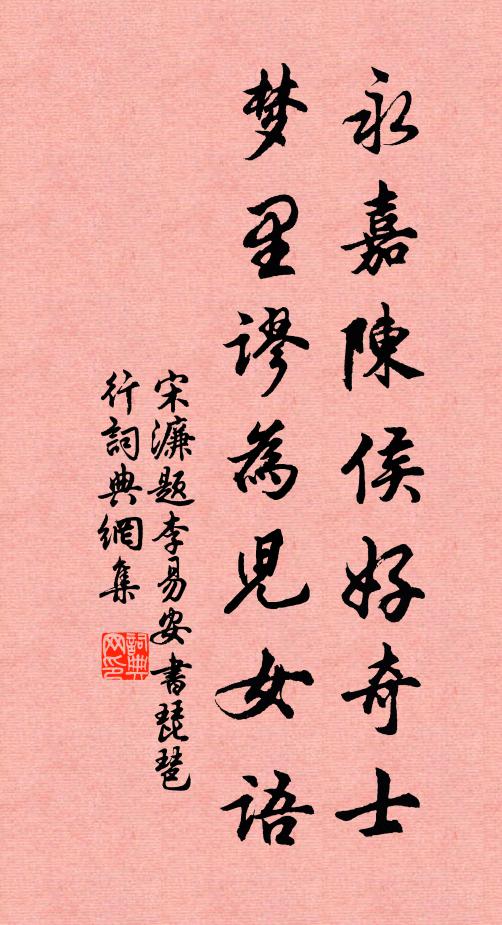 永嘉陳侯好奇士
梦里謬為兒女語
宋濂题李易安書琵琶
行詞典網集
詞典网印